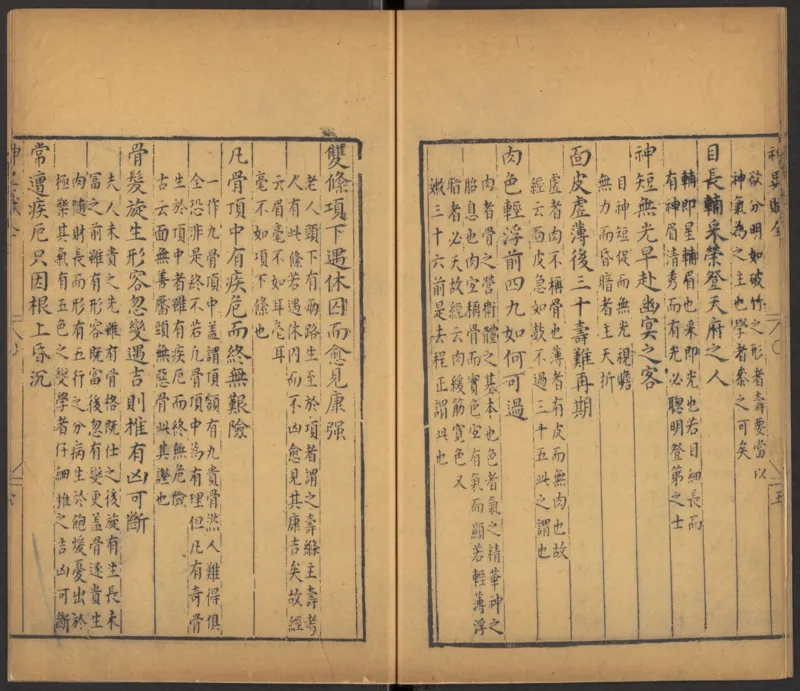 神異賦全
五
欲分明如破竹之形者壽要當以
神氣為之主也學者叅之可矣
目長輔采榮登天府之人
輔即星輔眉也采即光也若目細長而
有神眉清秀而有光必聰明登第之士
神短無光早赴幽㝠之客
目神短促而無光視瞻
無力而昏暗者主夭折
面皮虛薄後三十壽難再期
虛者肉不稱骨也薄者有皮而無肉也故
經云面皮急如皷不過三十五此之謂也
肉色輕浮前四九如何可過
肉者骨之營衛體之基本也色者氣之精華神之
胎息也肉宜稱骨而實色宜有氣而顯若輕薄浮
脂者必夭故經云肉緩筋寬色又
嫰三十六前是去程正謂此也
雙絛項下遇休囚而愈見康强
老人頸下有兩路生至於項者謂之壽絛主壽考
人有此絛若遇休囚而不凶愈見其康吉矣故經
云眉毫不如耳毫耳
毫不如項下絛也
凡骨頂中有疾危而終無艱險
一作九骨頂中盖謂頂額有九貴骨然人難得俱
全恐非是終不若凡骨頂中為有理但凡有奇骨
生於頂中者雖有疾厄而終無危險
古云面無善靨頭無惡骨此其證也
骨髮旋生形容忽變遇吉則推有凶可斷
夫人未貴之先雖有骨格既仕之後旋有生長未
冨之前雖有形容既富後忽有變更盖骨逐貴生
肉隨財長而形有五行之分病生於飽煖憂出於
極樂其氣有五色之變學者仔細推之吉凶可斷
常遭疾厄只因根上昏沉
神異賦全